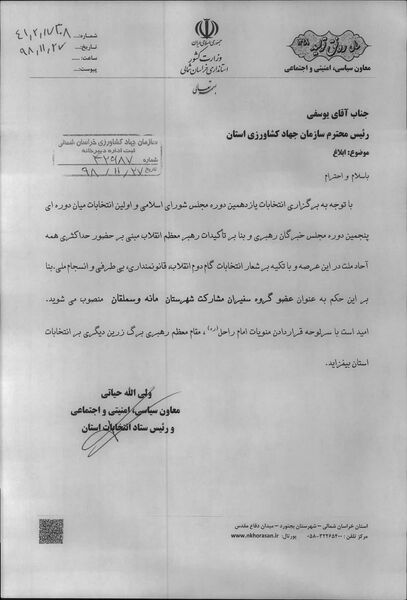 جمهوری اسلامی ایران
وزارت کشور
استانداری خراسان شمالی
بسمه تعالی
معاون سیاسی، امنیتی و اجتماعی
شماره:
تاریخ: ۹۸,۱۱,۲۷
ساعت:
پیوست:
جناب آقای یوسفی
رئیس محترم سازمان جهاد کشاورزی استان
موضوع: ابلاغ
سازمان جهاد کشاورزی خراسان شمالی
ثبت اداره دبیرخانه
شماره ۳۲۵۱۸۷
تاریخ ۹۸/۱۱/۲۷
باسلام و احترام
با توجه به برگزاری انتخابات یازدهمین دوره مجلس شورای اسلامی و اولین انتخابات میان دوره ای
پنجمین دوره مجلس خبرگان رهبری و بنا بر تأکیدات رهبر معظم انقلاب مبنی بر حضور حداکثری همه
آحاد ملت در این عرصه و با تکیه بر شعار انتخابات گام دوم انقلاب، قانونمداری، بی طرفی و انسجام ملی.بنا
بر این حکم به عنوان عضو گروه سفیران مشارکت شهرستان مانه وسملقان منصوب می شوید.
امید است با سرلوحه قراردادن منویات امام راحل(ره)، مقام معظم رهبری برگ زرین دیگری بر انتخابات
استان بیفزاید.
ولی الله حیاتی
معاون سیاسی، امنیتی و اجتماعی
و رئیس ستاد انتخابات استان
استان خراسان شمالی – شهرستان بجنورد – میدان دفاع مقدس
مرکز تلفن : ۰۵۸-۳۲۲۶۵۴۰۰ پورتال www.nkhorasan.ir